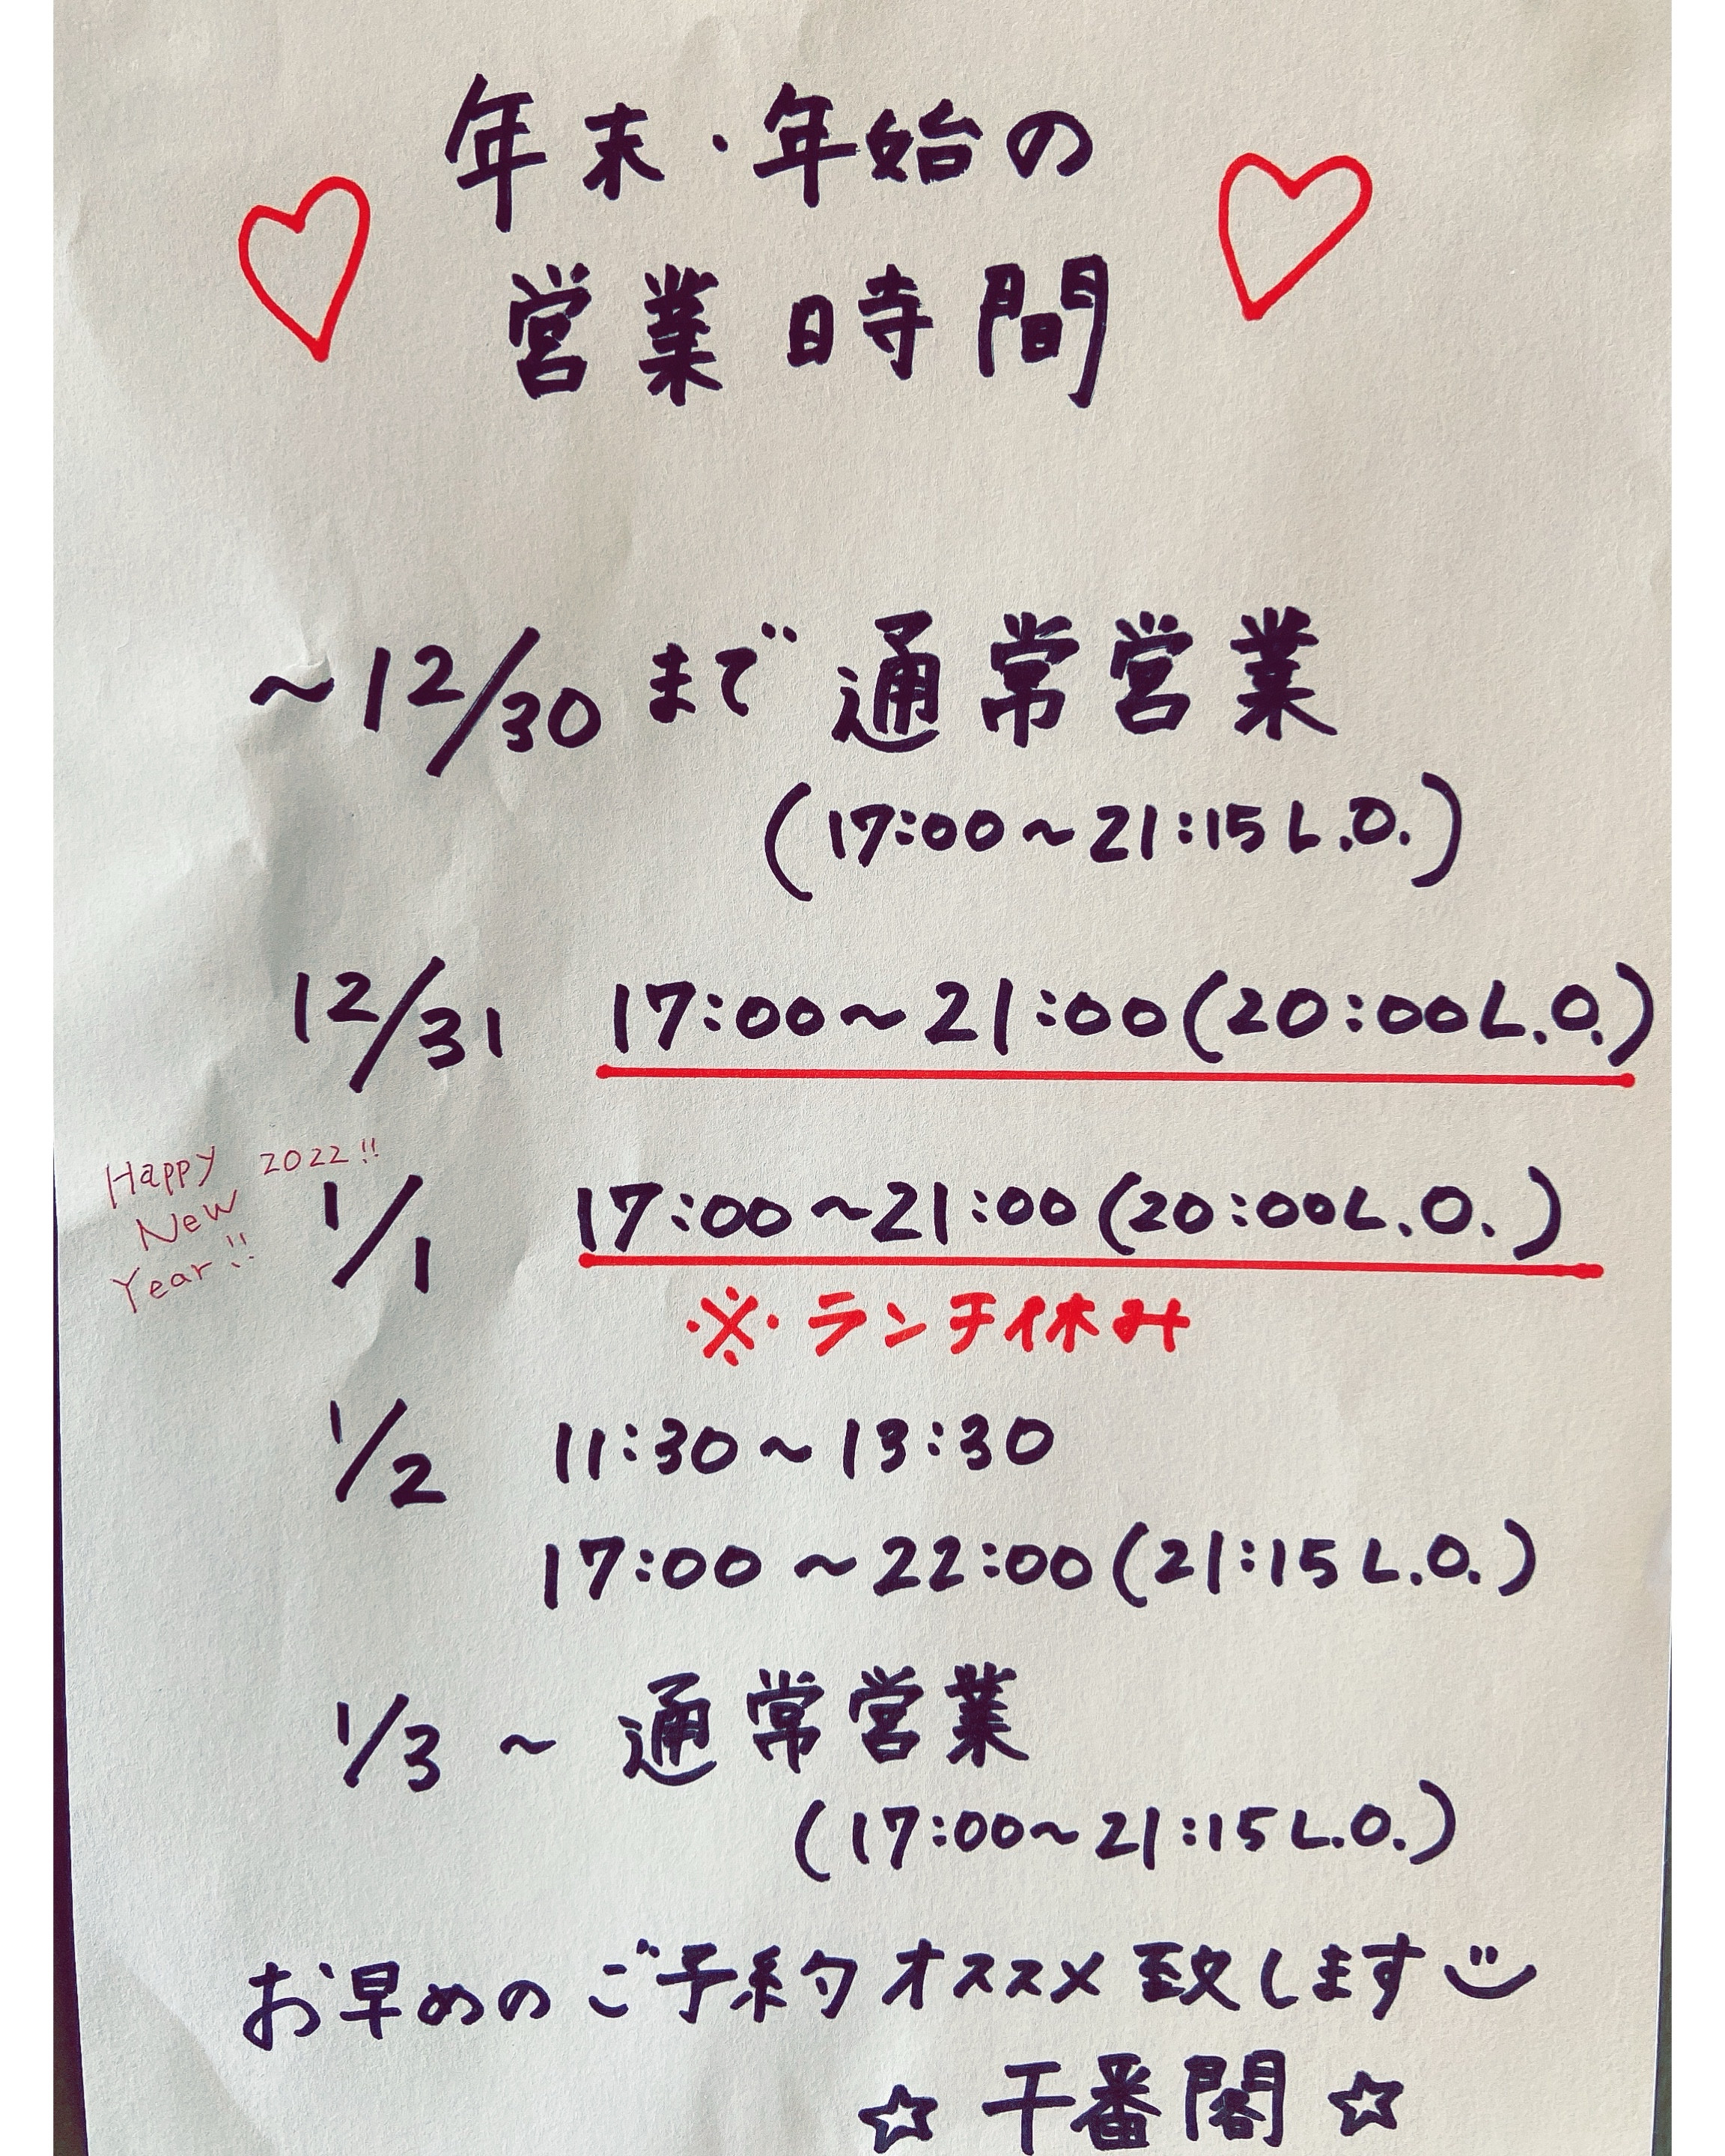 年末・年始の
営業時間
~12/30 まで 通常営業
(17:00~21:15 L.O.)
12/31 17:00~21:00(20:00L.O.)
Happy 2022!!
New
Year!!
1/1 17:00~21:00(20:00L.O.)
※ランチ休み
1/2 11:30~13:30
17:00~22:00(21:15 L.O.)
1/3 ~ 通常営業
(17:00~21:15 L.O.)
お早めのご予約オススメ致します
☆ 干番閣 ☆